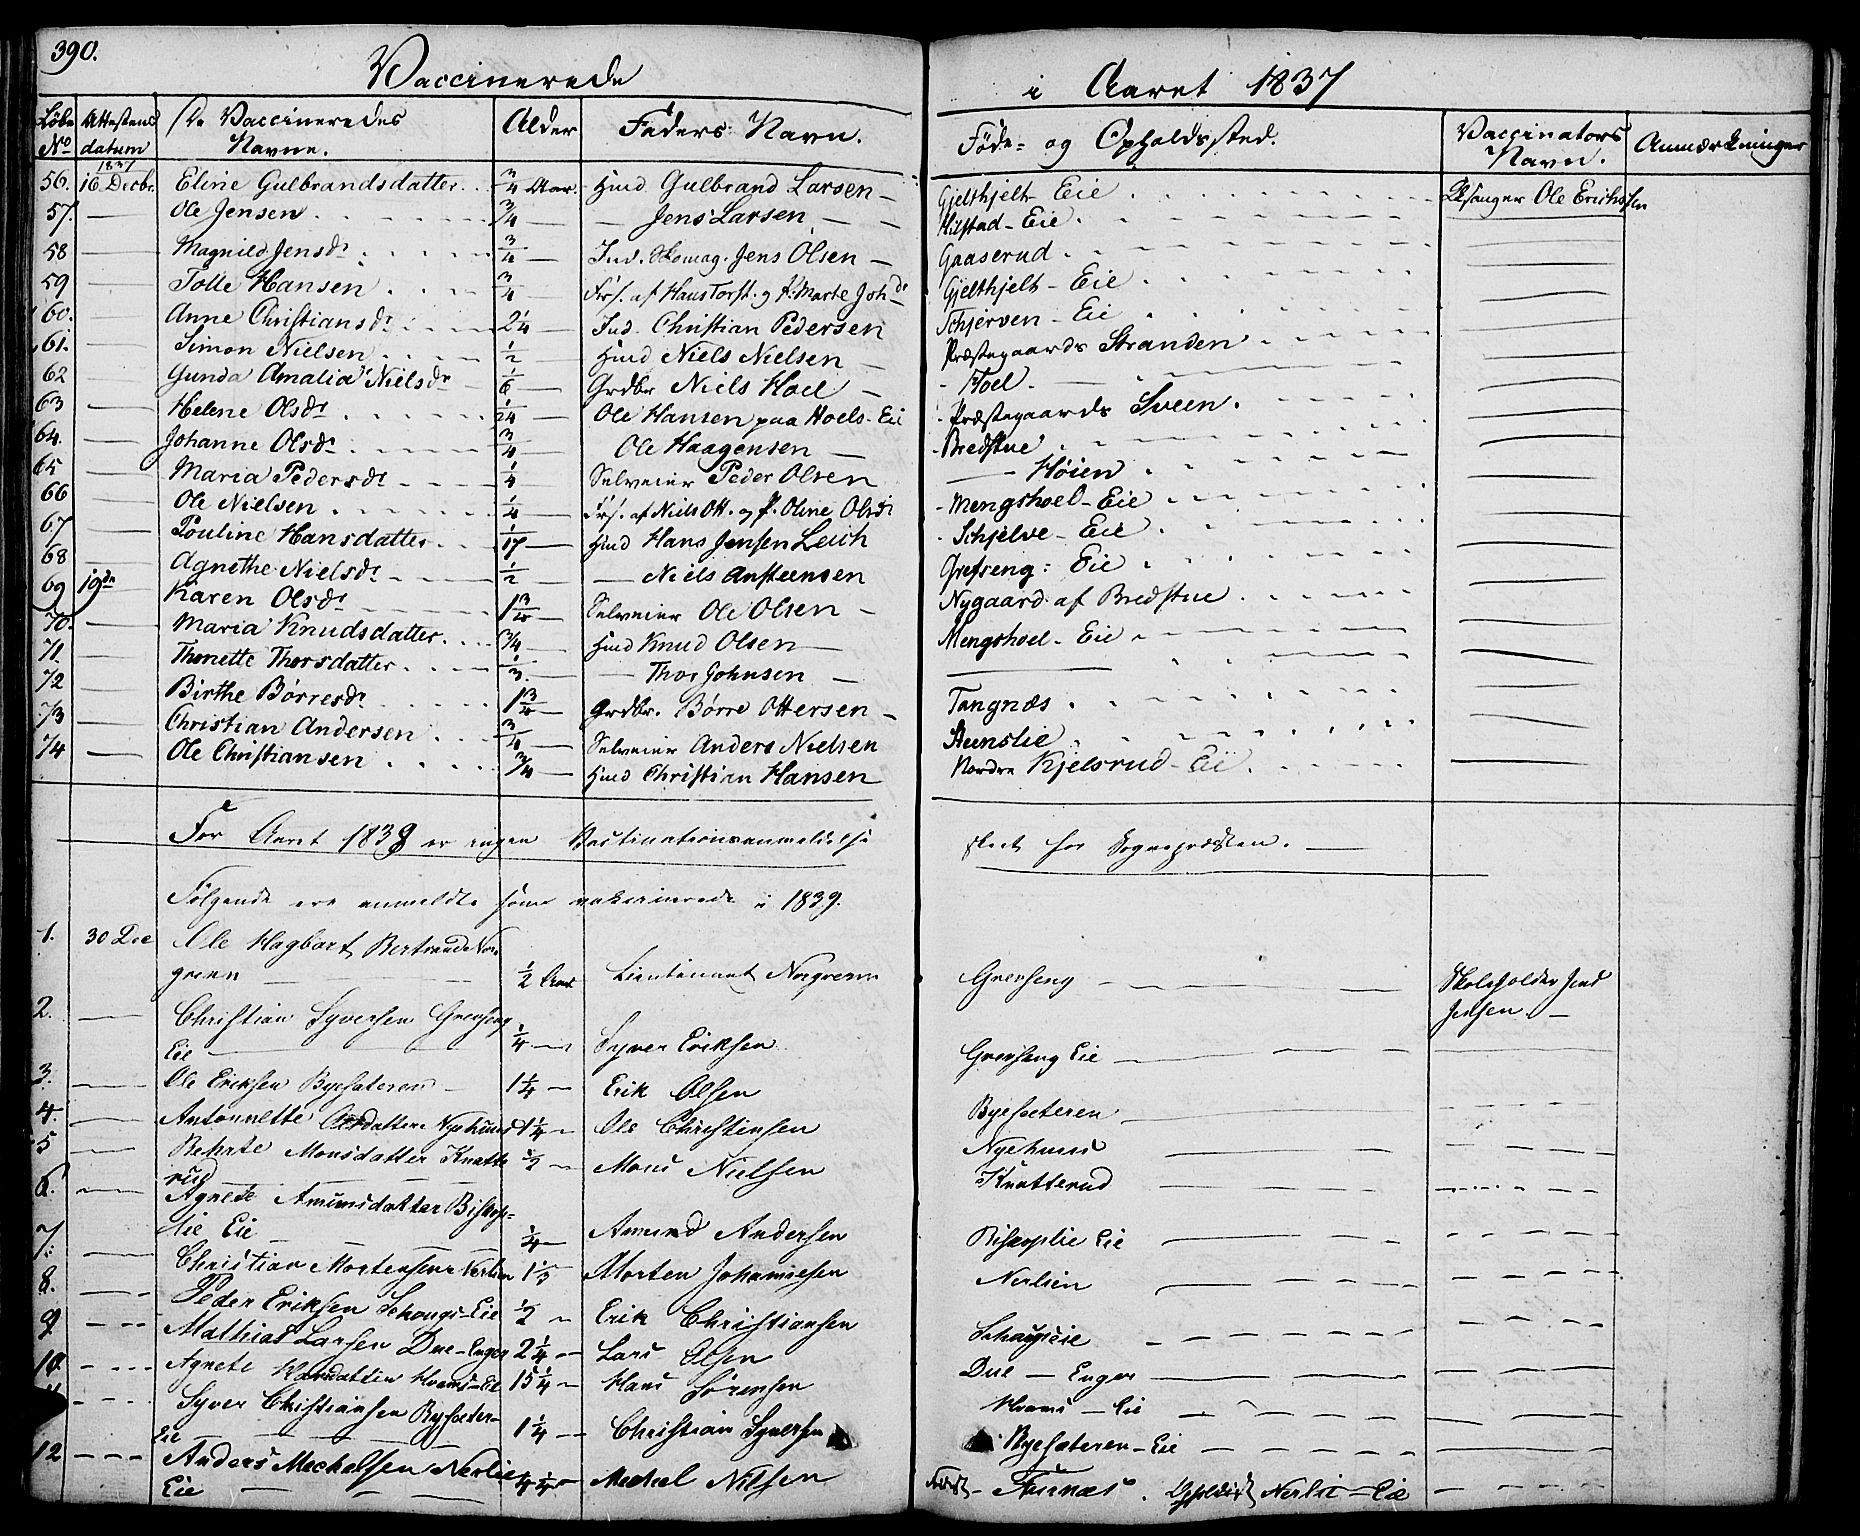 390.
Vaccinerede i Aaret 1837
Løbe No | Attestens datum | De Vaccineredes Navne. | Alder | Faders Navn. | Føde- og Opholdssted. | Vaccinators Navn. | Anmærkninger
1837
56. 16 Decbr. Eline Gulbrandsdatter. 3/4 Aar. Huusmd Gulbrand Larsen — Gjelthjelt Eie Ole Erichssen
57. — Ole Jensen 3/4 — Jens Larsen — Hilstad-Eie.
58 — Magnild Jensdr. 3/4 — Ind. Skomag. Jens Olsen — Gaaserud
59 — Tolle Hansen 3/4 Frs. af Hans Torst. og P. Marte Johdr Gjelthjelt-Eie
60. — Anne Christiansdr. 2 1/4 — Ind. Christian Pedersen Schjerven-Eie
61. — Simon Nielsen 1/2 — Hmd Niels Nielsen — Præstegaards Stranden
62 — Gunda Amalia Nielsdr 1/6 — Grdbr Niels Hoel — Hoel.
63 — Helene Olsdr 1/4 — Ole Hansen paa Hoels-Eie Præstegaards Sveen.
64. — Johanne Olsdr 3/4 — Ole Haagensen — Bredstue
65 — Maria Pedersdr 1/4 — Selveier Peder Olsen — Høien
66 — Ole Nielsen 1/4 — Frs. af Niels Ott. og P. Oline Olsdr Mengshoel-Eie
67 — Pouline Hansdatter 1/17 — Hmd Hans Jensen Leich Schjelve-Eie
68 — Agnethe Nielsdr. 1/2 — Niels Ansteensen Grefseng: Eie
69 19de Karen Olsdr 1 3/4 — Selveier Ole Olsen — Nygaard af Bredstue
70. — Maria Knudsdatter. 3/4 — Hmd Knud Olsen — Mengshoel-Eie
71. — Thonette Thorsdatter 1/3. — Thor Johnsen — —
72 — Birthe Børresdr. 1 3/4 — Grdbr. Børre Ottersen — Tangnæs
73 — Christian Andersen 3/4 — Selveier Anders Nielsen Steenslie
74 — Ole Christiansen 3/4 — Hmd Christian Hansen Nordre Kjelsrud-Eie
For Aaret 1838 er ingen Vactinationsanmeldelse skeet for Sognepræsten. —
Følgende ere anmeldte som vakcinerede i 1839.
1. 30 Dec Ole Hagbart Bertrand Nor-
green 1/2 Aar Lieutenant Norgreen Grevseng Skoleholder Jens
Jensen. —
2. — Christian Syversen Grevseng
Eie 1/4 — Syver Eriksen Grevseng Eie
3. — Ole Eriksen Byesæteren 1 1/4 — Erik Olsen Byesæteren
4. — Antonnette Olesdatter Nyehuus 1 1/4 — Ole Christensen Nyehuus
5 — Behrte Monsdatter Knatte
rud 1/2 — Mons Nielsen Knatterud
6. — Agnete Amunsdatter Bisop-
lie Eie 1/4 — Amund Andersen Bisoplie Eie
7. — Christian Mortensen Nerlien 1 1/3 Morten Johannesen Nerlien
8. — Peder Eriksen Schougs-Eie 1/2 — Erik Christiansen Schougseie
9 — Mathias Larsen Due-Enger 2 1/4 — Lars Olsen Due-Enger
10. — Agnete Hansdatter Hvams-Eie 15 1/4 — Hans Sørensen Hvams-Eie
Syver Christiansen Byesæter-
Eie 1 1/4 — Christian Syversen Byesæteren-Eie
12 — Anders Meckelsen Nerlie
Eie 4 1/4 — Meckel Nilsen Født-Furnæs. Opholdst. Nerlie-Eie